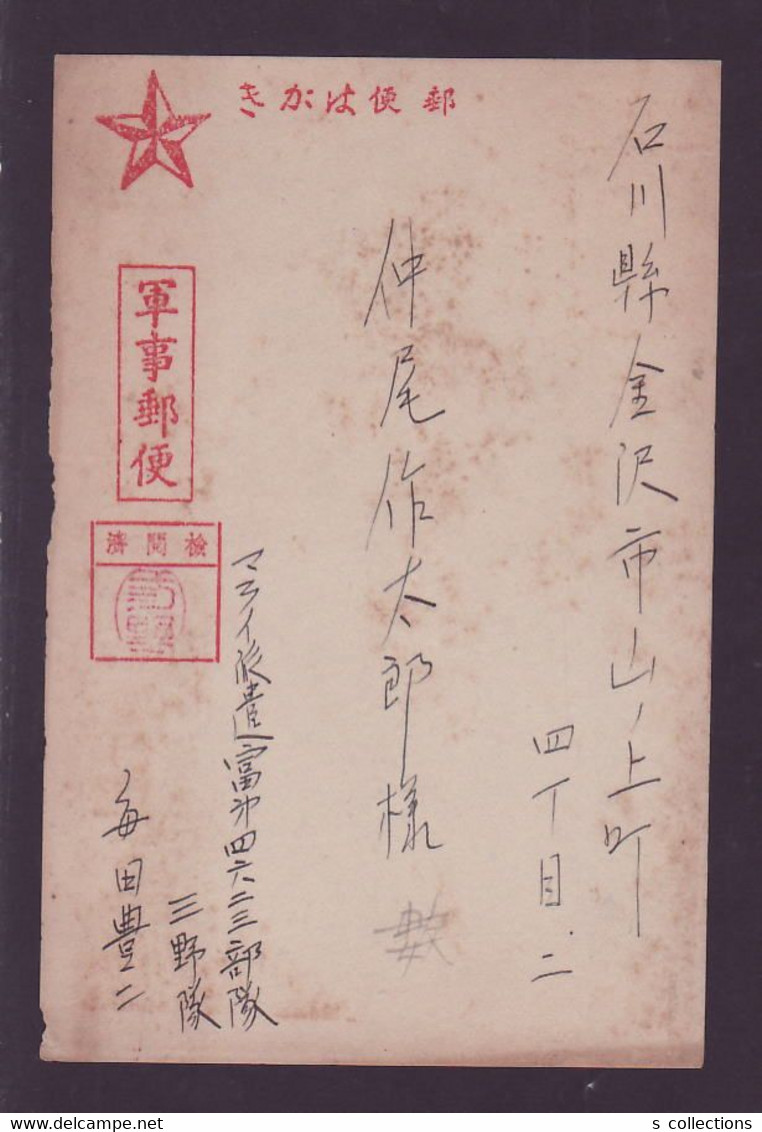 郵便はがき
石川縣金沢市山ノ上町
四丁目.二
仲尾作太郎様
軍事郵便
檢閲濟
マライ派遣富第四六二三部隊
三野隊
毎田豊二
s collections
www.delcampe.net